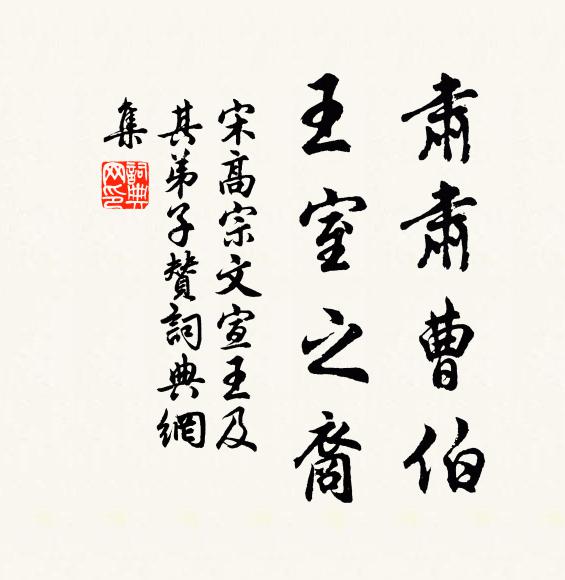 肅肅曹伯
王室之裔
宋高宗文宣王及
其弟子贊詞典網
集
詞典
网印